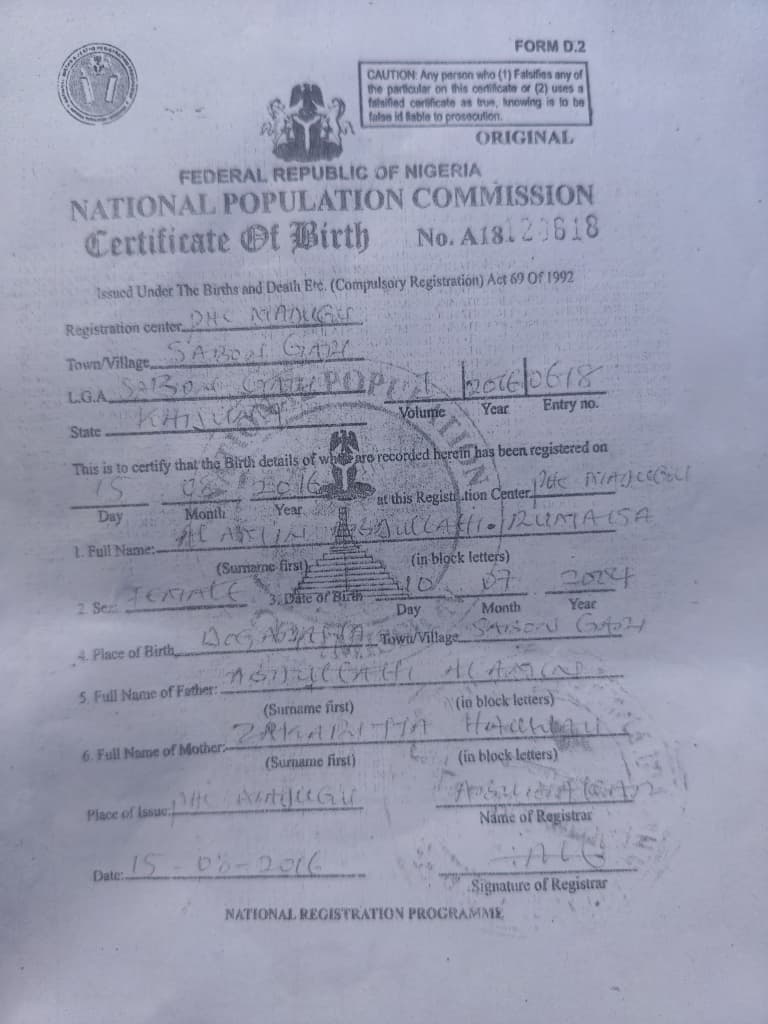 FORM D.2
CAUTION: Any person who (1) Falsifies any of
the particular on this certificate or (2) uses a
falsified certificate as true, knowing is to be
false id liable to prosecution.
ORIGINAL
FEDERAL REPUBLIC OF NIGERIA
NATIONAL POPULATION COMMISSION
Certificate Of Birth No. A18
Issued Under The Births and Death Etc. (Compulsory Registration) Act 69 Of 1992
Registration center PHC
Town/Village SABON GARI
L.G.A. SABON GARI 1 2016 0618
Volume Year Entry no.
State KADUNA
This is to certify that the Birth details of whom are recorded herein has been registered on
15 08 2016 at this Registration Center PHC
Day Month Year
1. Full Name: AL AMIN ABDULLAHI RUMAISA
(Surname first) (in block letters)
2. Sex: FEMALE 3. Date of Birth 10 07
Day Month Year
4. Place of Birth Town/Village SABON GARI
5. Full Name of Father: ABDULLAHI ALAMIN
(Surname first) (in block letters)
6. Full Name of Mother:
(Surname first) (in block letters)
Place of Issue: PHC
Name of Registrar
Date: 15-08-2016
Signature of Registrar
NATIONAL REGISTRATION PROGRAMME